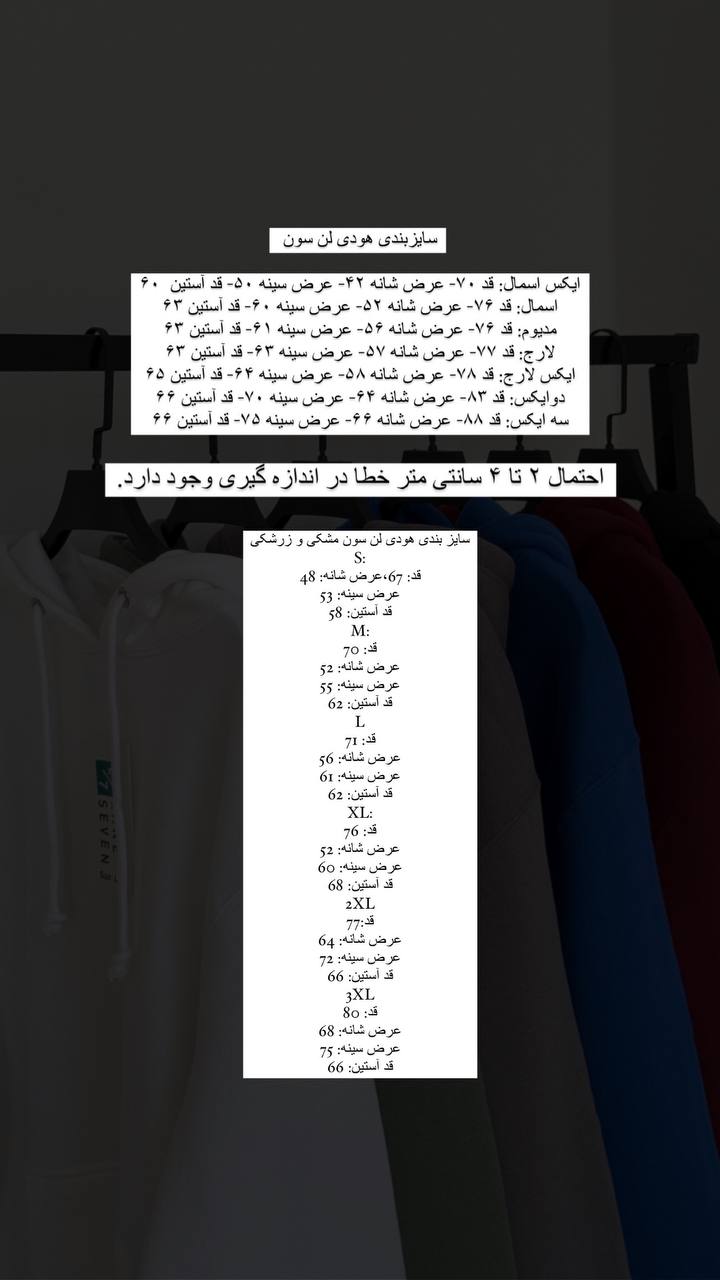 سایزبندی هودی لن سون
ایکس اسمال: قد ۷۰- عرض شانه ۴۲- عرض سینه ۵۰- قد آستین ۶۰
اسمال: قد ۷۶- عرض شانه ۵۲- عرض سینه ۶۰- قد آستین ۶۳
مدیوم: قد ۷۶- عرض شانه ۵۶- عرض سینه ۶۱- قد آستین ۶۳
لارج: قد ۷۷- عرض شانه ۵۷- عرض سینه ۶۳- قد آستین ۶۳
ایکس لارج: قد ۷۸- عرض شانه ۵۸- عرض سینه ۶۴- قد آستین ۶۵
دوایکس: قد ۸۳- عرض شانه ۶۴- عرض سینه ۷۰- قد آستین ۶۶
سه ایکس: قد ۸۸- عرض شانه ۶۶- عرض سینه ۷۵- قد آستین ۶۶
احتمال ۲ تا ۴ سانتی متر خطا در اندازه گیری وجود دارد.
سایز بندی هودی لن سون مشکی و زرشکی
S:
قد: 67،عرض شانه: 48
عرض سینه: 53
قد آستین: 58
M:
قد: 70
عرض شانه: 52
عرض سینه: 55
قد آستین: 62
L
قد: 71
عرض شانه: 56
عرض سینه: 61
قد آستین: 62
XL:
قد: 76
عرض شانه: 52
عرض سینه: 60
قد آستین: 68
2XL
قد:77
عرض شانه: 64
عرض سینه: 72
قد آستین: 66
3XL
قد: 80
عرض شانه: 68
عرض سینه: 75
قد آستین: 66
SEVEN